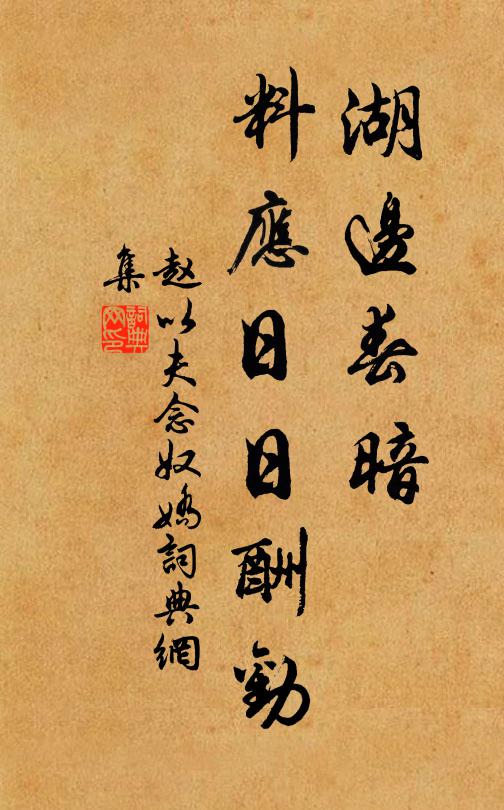 湖邊春暗
料應日日酬勸
赵以夫念奴嬌詞典網
集
詞典
网印